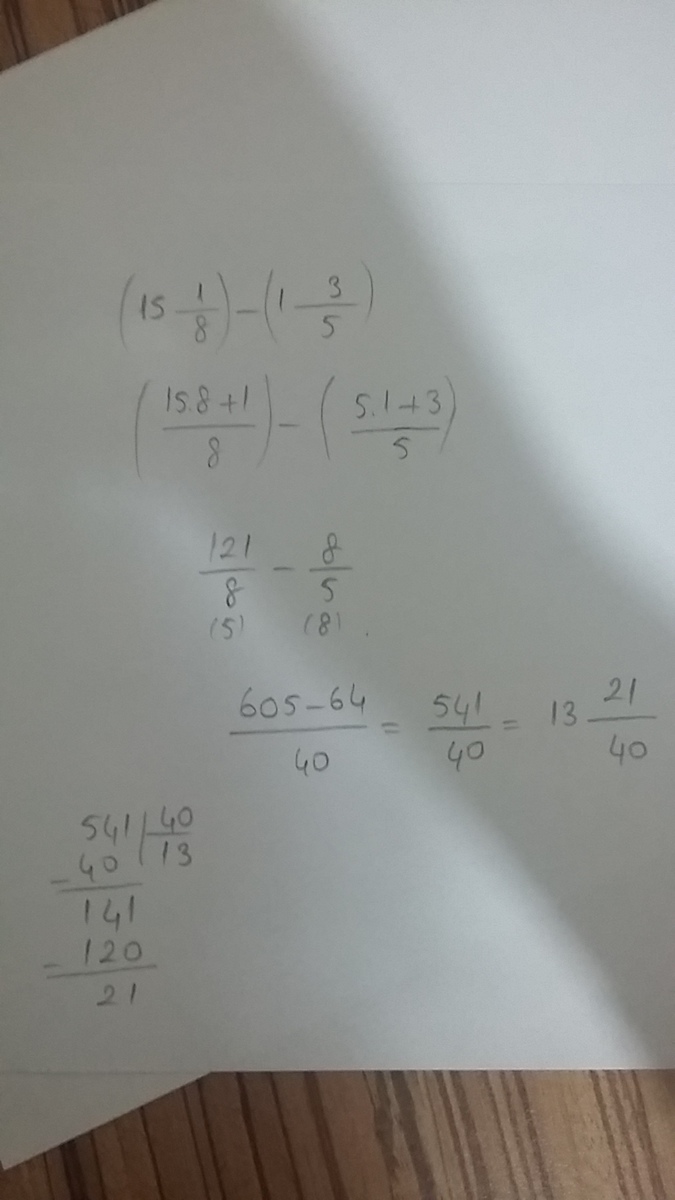 (15 1/8) - (1 3/5)
(15.8+1/8) - (5.1+3/5)
121/8 - 8/5
(5) (8).
605-64/40 = 541/40 = 13 21/40
541 | 40
- 40 | 13
141
- 120
21